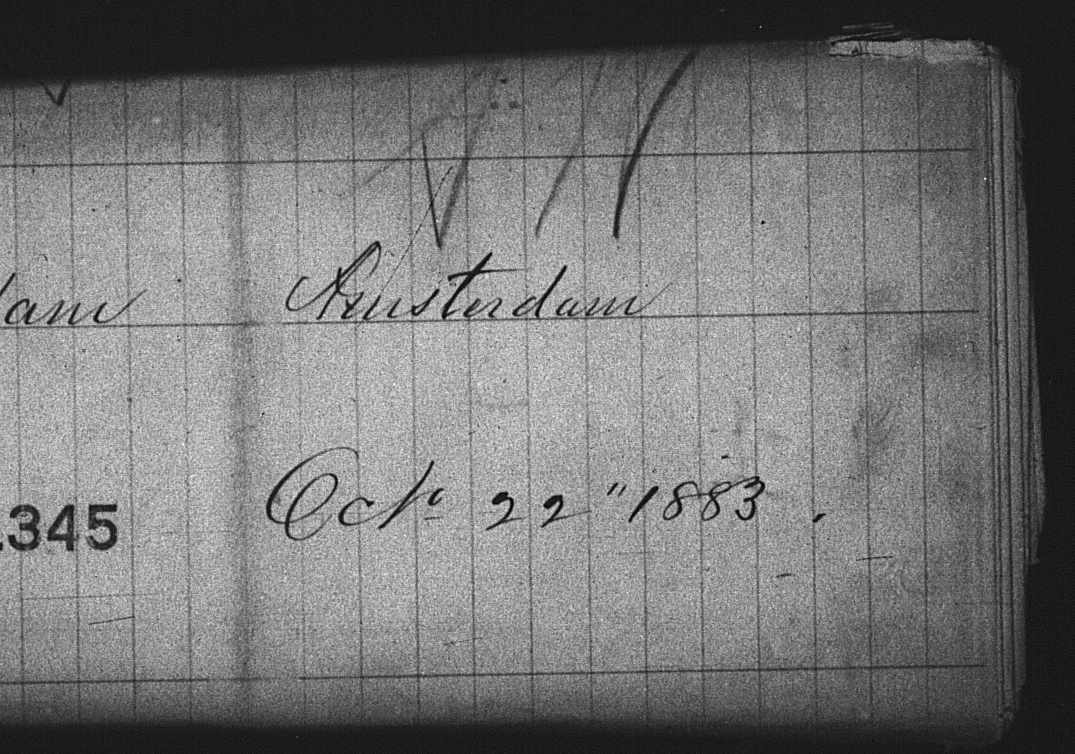 Amsterdam
345 Oct° 22" 1883.